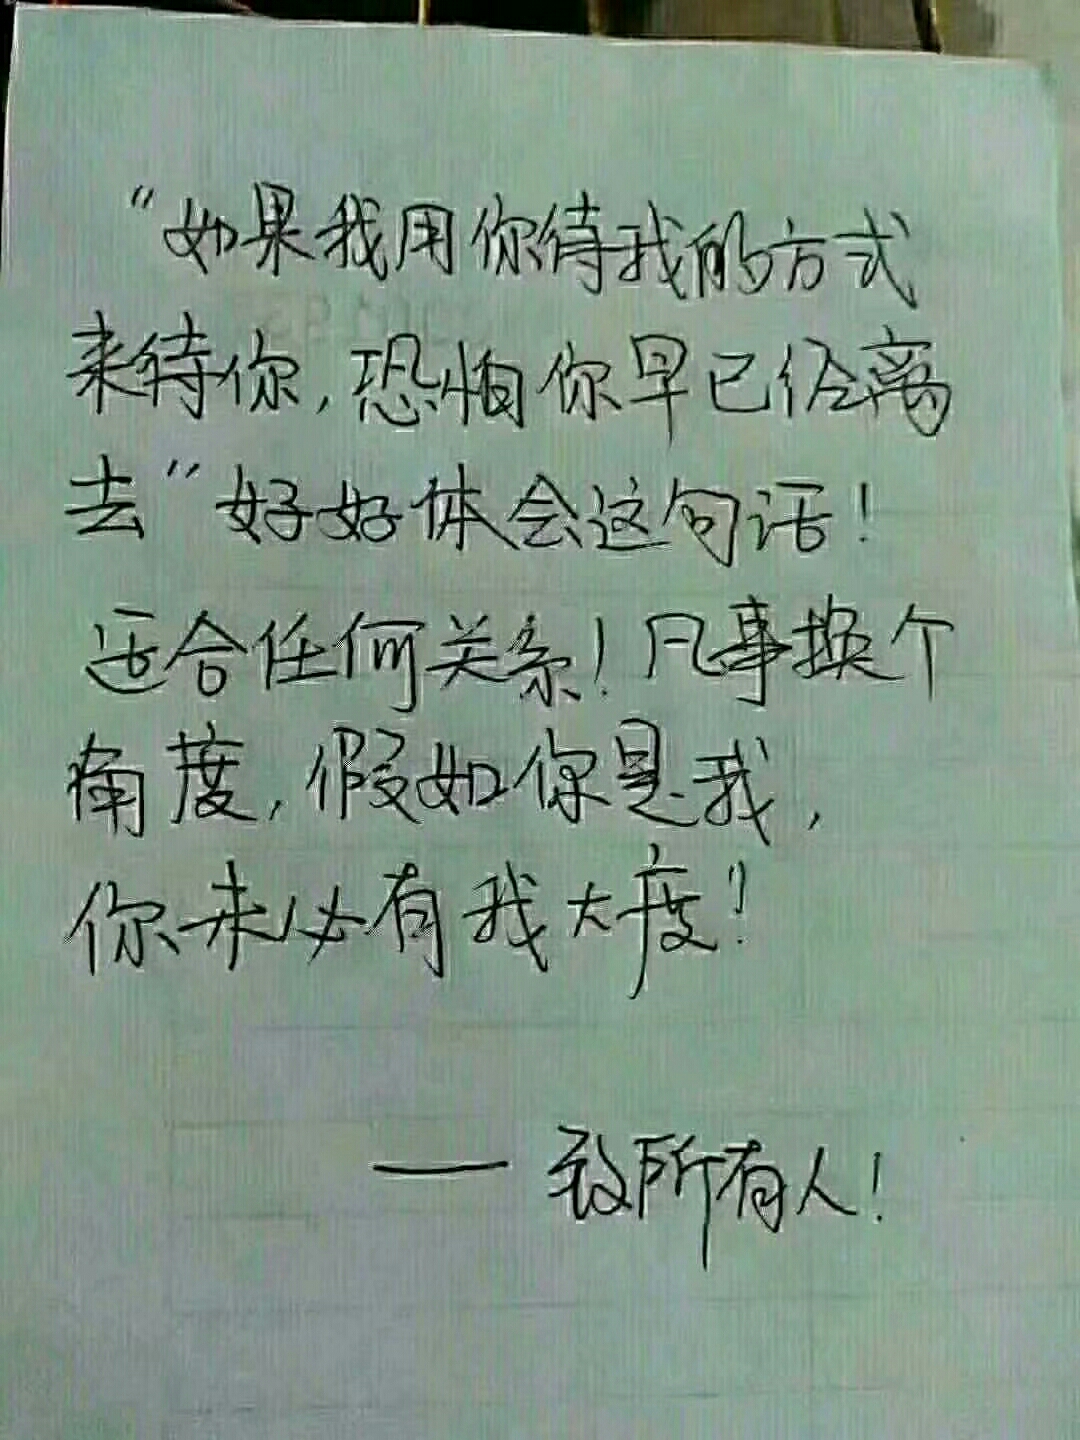 “如果我用你待我的方式
来待你,恐怕你早已经离
去”好好体会这句话!
适合任何关系!凡事换个
角度,假如你是我,
你未必有我大度!
——致所有人!